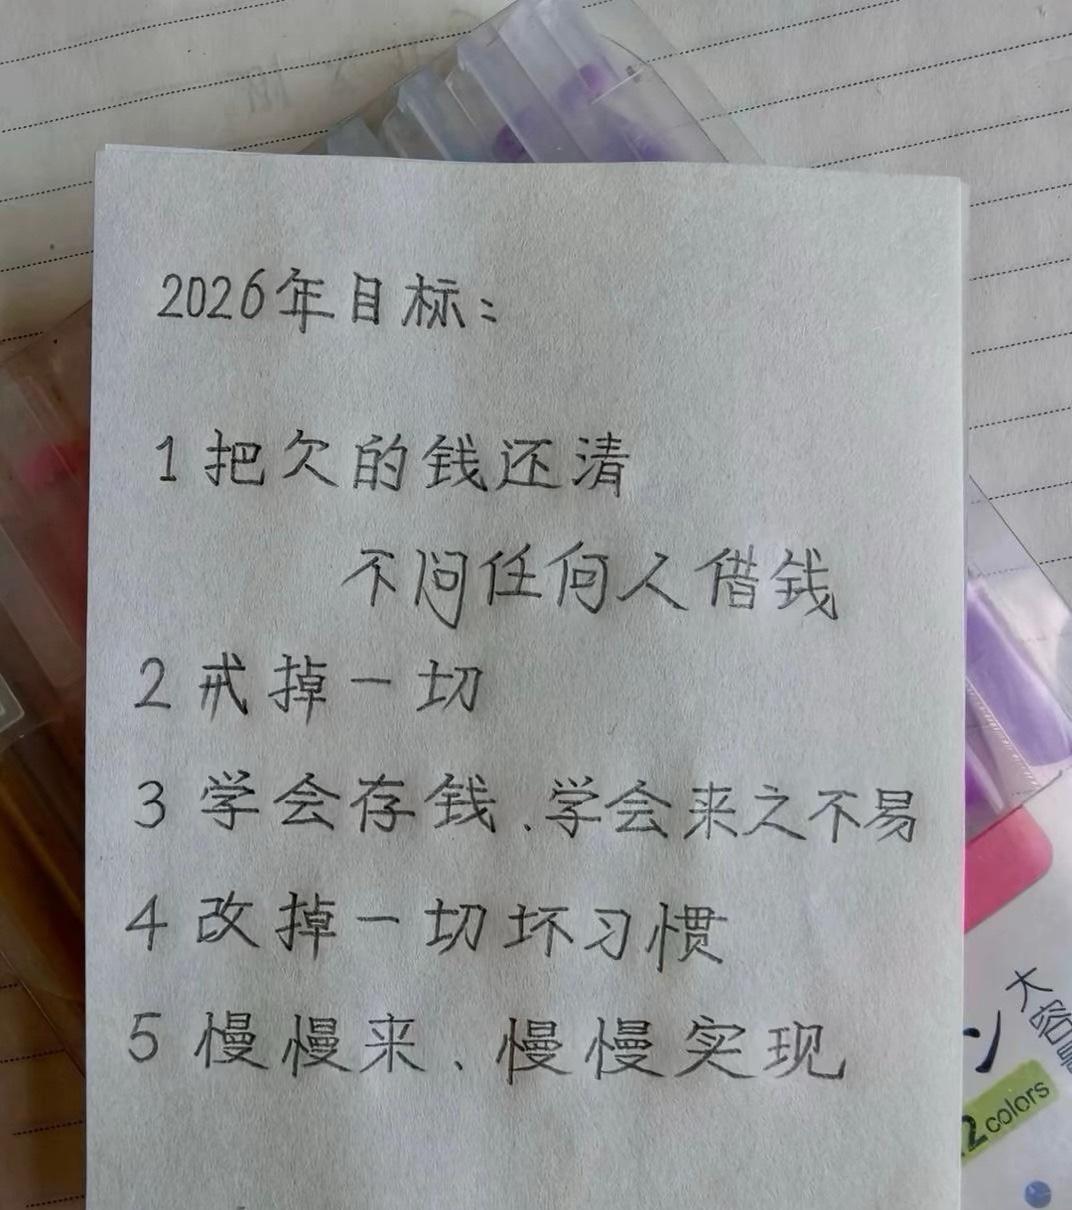 2026年目标：
1 把欠的钱还清
不问任何人借钱
2 戒掉一切
3 学会存钱、学会来之不易
4 改掉一切坏习惯
5 慢慢来、慢慢实现
大
ン
2colors